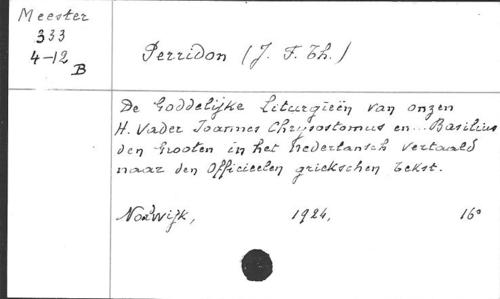 Meester
333
4-12
B
Perridon (J. F. Th.)
De Goddelijke Liturgieën van onzen
H. Vader Joannes Chrysostomus en... Basilius
den Grooten in het Nederlansch vertaald
naar den Officieelen griekschen tekst.
Norwijk, 1924, 16°